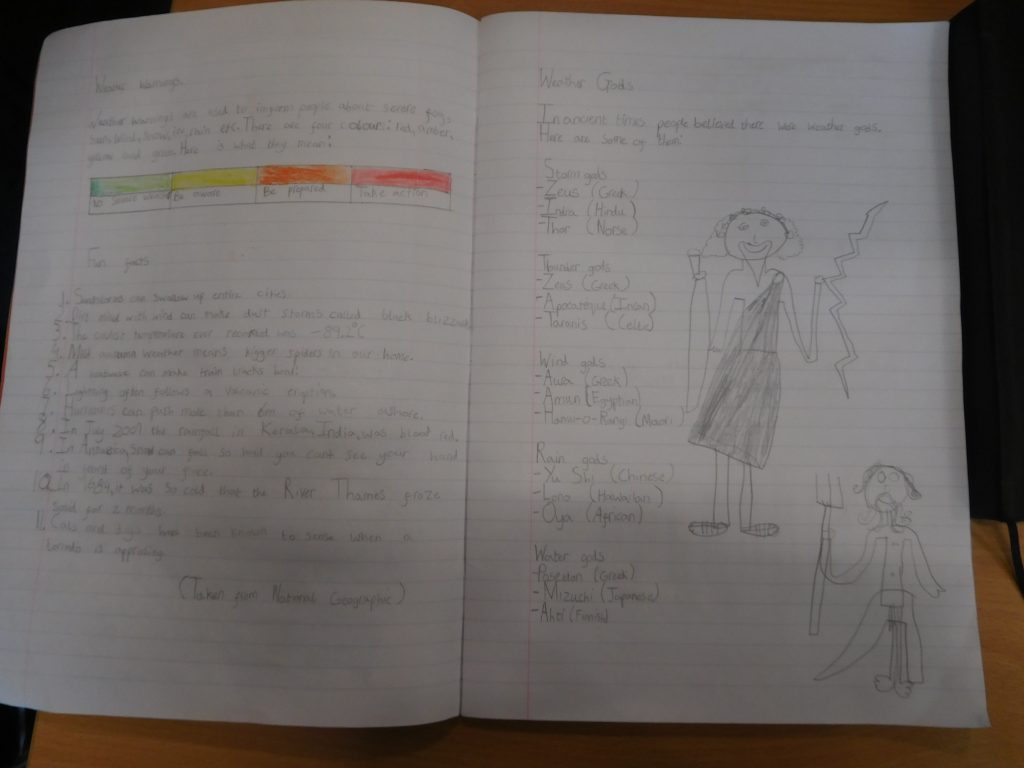 Weather Warnings.
Weather warnings are used to inform people about severe fog,
rain, wind, snow, ice, etc. There are four colours: red, amber,
yellow and green. Here is what they mean:
no severe weather Be aware Be prepared Take action
Fun facts
1. Sandstorms can swallow up entire cities.
2. Dirt mixed with wind can make dust storms called black blizzards
3. The coldest temperature ever recorded was -89.2°C
4. Mild autumn weather means bigger spiders in our house.
5. A heatwave can make train tracks bend.
6. Lightning often follows a volcanic eruption.
7. Hurricanes can push more than 6m of water ashore.
8. In July 2001 the rainfall in Kerala, India, was blood red.
9. In Antarctica, snow can fall so hard you cant see your hand
in front of your face.
10. In 1684, it was so cold that the River Thames froze
solid for 2 months.
11. Cats and dogs have been known to sense when a
tornado is approaching
(Taken from National Geographic)
Weather Gods
In ancient times people believed there were weather gods.
Here are some of them:
Storm gods
-Zeus (Greek)
-Indra (Hindu)
-Thor (Norse)
Thunder gods
-Zeus (Greek)
-Apocatequil (Incan)
-Taranis (Celtic)
Wind gods
-Aura (Greek)
-Amun (Egyptian)
-Hanui-o-Rangi (Maori)
Rain gods
-Yu Shi (Chinese)
-Lono (Hawaiian)
-Oya (African)
Water gods
-Poseidon (Greek)
-Mizuchi (Japanese)
-Ahti (Finnish)